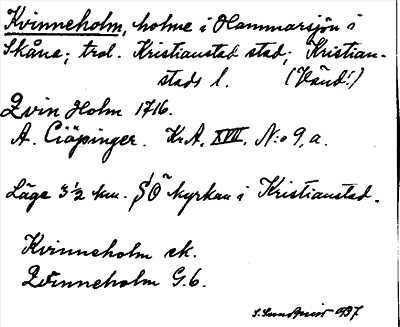 Kvinneholm, holme i Hammarsjön i
Skåne; trol. Kristianstad stad; Kristian-
stads l. (Vänd!)
Qvin Holm 1716.
A. Ciöpinger. Kr.A. XVII, N:o 9, a.
Läge 3 ½ km. SO kyrkan i Kristianstad.
Kvinneholm ek.
Qvinneholm G.6.
S. Sundqvist 1937